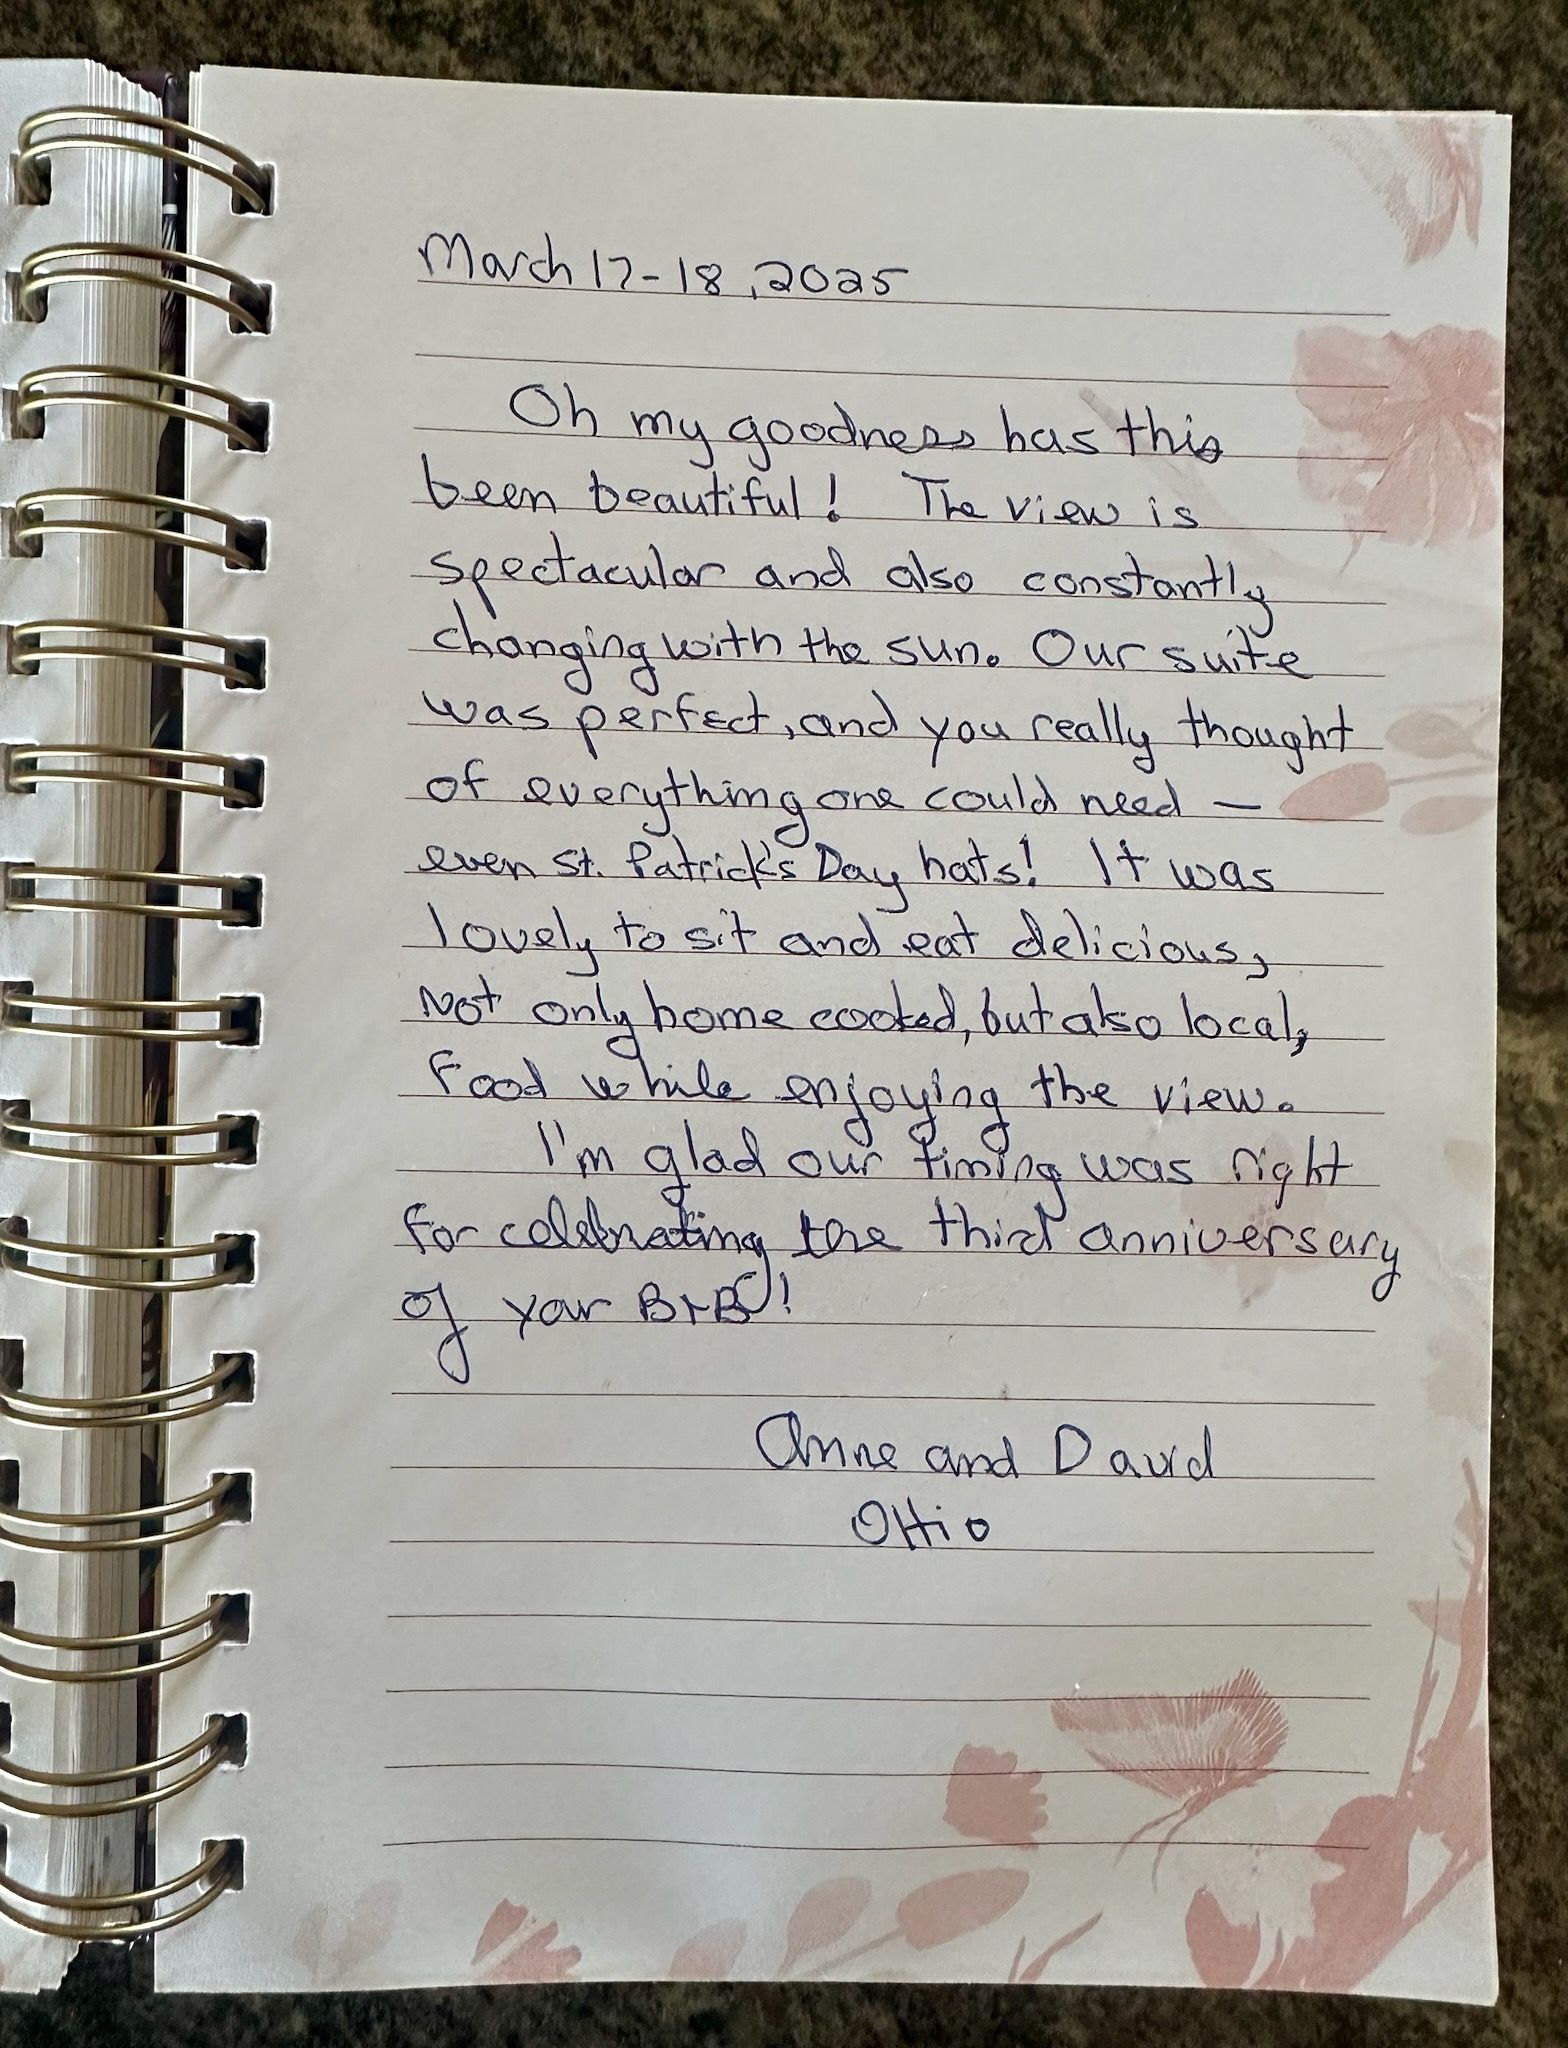 March 17-18, 2025
Oh my goodness has this
been beautiful! The view is
spectacular and also constantly
changing with the sun. Our suite
was perfect, and you really thought
of everything one could need —
even St. Patrick's Day hats! It was
lovely to sit and eat delicious,
not only home cooked, but also local,
food while enjoying the view.
I'm glad our timing was right
for celebrating the third anniversary
of your B+B!
Anne and David
OHio